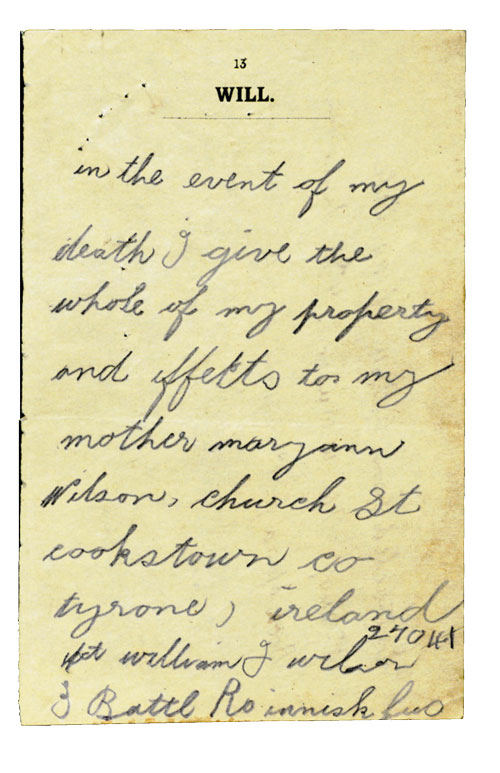 13
WILL.
in the event of my
death I give the
whole of my property
and effekts to my
mother maryann
Wilson, church St
cookstown co
tyrone, ireland
william J wilson
J Battl Ro innisk fus